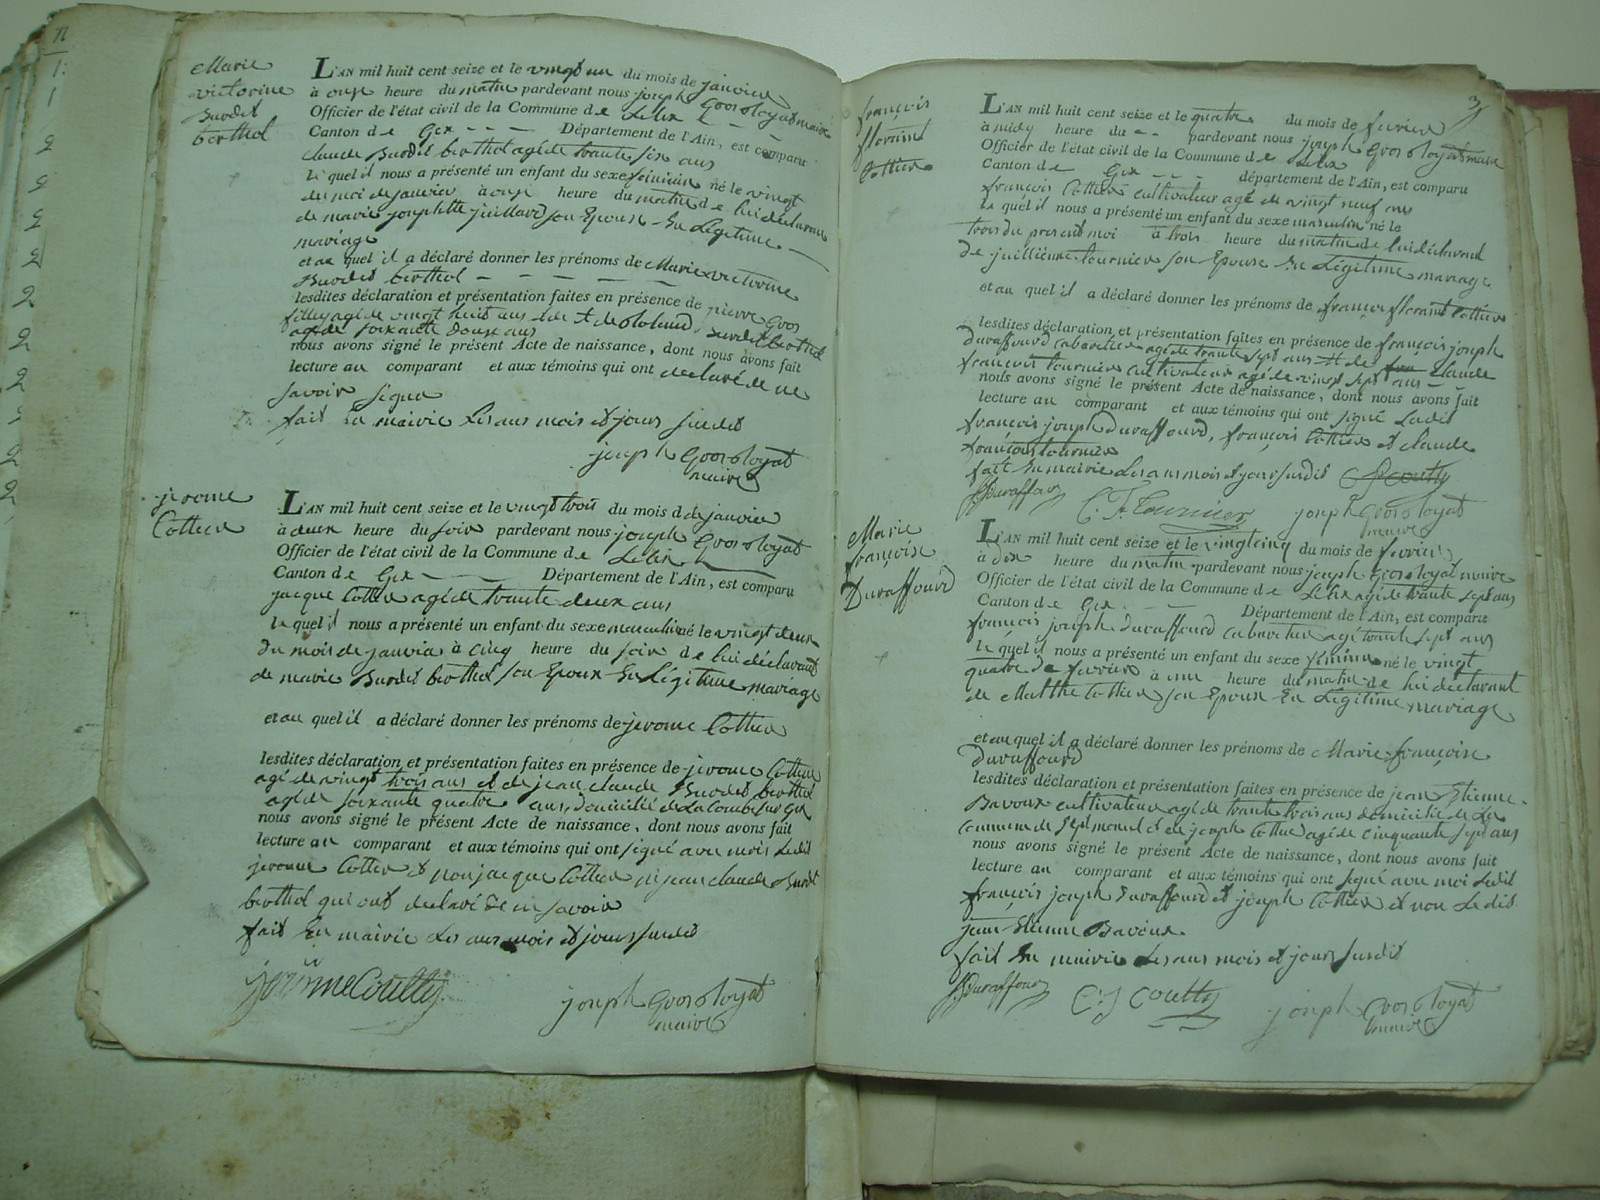 Marie
victorine
Burdet
berthod
L'AN mil huit cent seize et le vingt un du mois de janvier
à onze heure du matin pardevant nous joseph Grosgloyat maire
Officier de l'état civil de la Commune de Lelex
Canton de Gex Département de l'Ain, est comparu
claude Burdet berthod agé de trante six ans
le quel il nous a présenté un enfant du sexe feminin né le vingt
du moi de janvier à onze heure du matin de lui déclarant
de marie josephtte juillard son Epouse En Légitime
mariage
et au quel il a déclaré donner les prénoms de Marie victorine
Burdet berthod
lesdites déclaration et présentation faites en présence de pierre Gros
agé de vingt huit ans et de Burdet berthod
agé de soixante douze ans
nous avons signé le présent Acte de naissance, dont nous avons fait
lecture au comparant et aux témoins qui ont declaré de ne
savoir signer
fait En mairie Les ans mois et jours susdits
joseph Grosgloyat
maire
jerome
Cottier
L'AN mil huit cent seize et le vingt trois du mois de janvier
à deux heure du soir pardevant nous joseph Grosgloyat
Officier de l'état civil de la Commune de Lelex
Canton de Gex Département de l'Ain, est comparu
jacque Cottier agé de trante deux ans
le quel il nous a présenté un enfant du sexe masculin né le vingt deux
du mois de janvier à cinq heure du soir de lui déclarant
de marie Burdet berthod son Epouse En Légitime mariage
et au quel il a déclaré donner les prénoms de jerome Cottier
lesdites déclaration et présentation faites en présence de jerome Cottier
agé de vingt trois ans et de jean claude Burdet berthod
agé de soixante quatre ans, Domicilié
nous avons signé le présent Acte de naissance, dont nous avons fait
lecture au comparant et aux témoins qui ont signé avec moi Ledit
jerome Cottier et non jacque Cottier ni jean claude Burdet
berthod qui ont declaré ne savoir
fait En mairie Les ans mois et jours susdits
joseph Grosgloyat
maire
3
françois
florent
Cottier
L'AN mil huit cent seize et le quatre du mois de fevrier
à midy heure du pardevant nous joseph Grosgloyat maire
Officier de l'état civil de la Commune de Lelex
Canton de Gex département de l'Ain, est comparu
françois Cottier cultivateur agé de vingt neuf ans
le quel il nous a présenté un enfant du sexe masculin né le
trois du present moi à trois heure du matin de lui déclarant
de jullienne tournier son Epouse En Légitime mariage
et au quel il a déclaré donner les prénoms de françois florent Cottier
lesdites déclaration et présentation faites en présence de françois joseph
Duraffourd cabaretier agé de trante sept ans et de claude
françois tournier cultivateur agé de vingt sept ans
nous avons signé le présent Acte de naissance, dont nous avons fait
lecture au comparant et aux témoins qui ont signé Ledit
françois joseph Duraffourd, françois Cottier et claude
françois tournier
fait En mairie Les ans mois et jour susdits
C. F. Tournier
joseph Grosgloyat
maire
Marie
françoise
Duraffourd
L'AN mil huit cent seize et le vingt cinq du mois de fevrier
à dix heure du matin pardevant nous joseph Grosgloyat maire
Officier de l'état civil de la Commune de Lelex agé de trante sept ans
Canton de Gex Département de l'Ain, est comparu
françois joseph Duraffourd cabaretier agé trante sept ans
le quel il nous a présenté un enfant du sexe feminin né le vingt
quatre de fevrier à une heure du matin de lui déclarant
de Marthe Cottier son Epouse En Légitime mariage
et au quel il a déclaré donner les prénoms de Marie françoise
Duraffourd
lesdites déclaration et présentation faites en présence de jean Etienne
Bavoux cultivateur agé de trante trois ans domicilié de La
commune de Septmoncel et de joseph Cottier agé de cinquante sept ans
nous avons signé le présent Acte de naissance, dont nous avons fait
lecture au comparant et aux témoins qui ont signé avec moi Ledit
françois joseph Duraffourd et joseph Cottier et non Ledit
jean Etienne Bavoux
fait En mairie Les ans mois et jour susdits
joseph Grosgloyat
maire